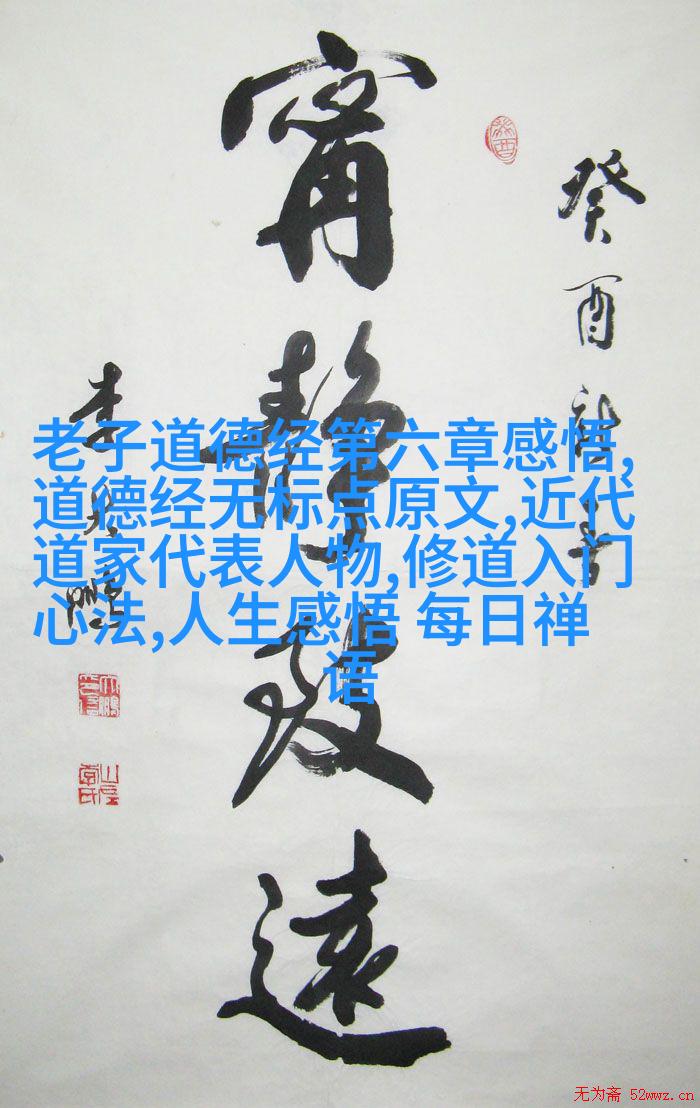 癸酉
寗靜致遠
李
老子道德经第六章感悟,
道德经无标点原文,近代
道家代表人物,修道入门
心法,人生感悟 每日禅
语
无为斋 52wwz.cn